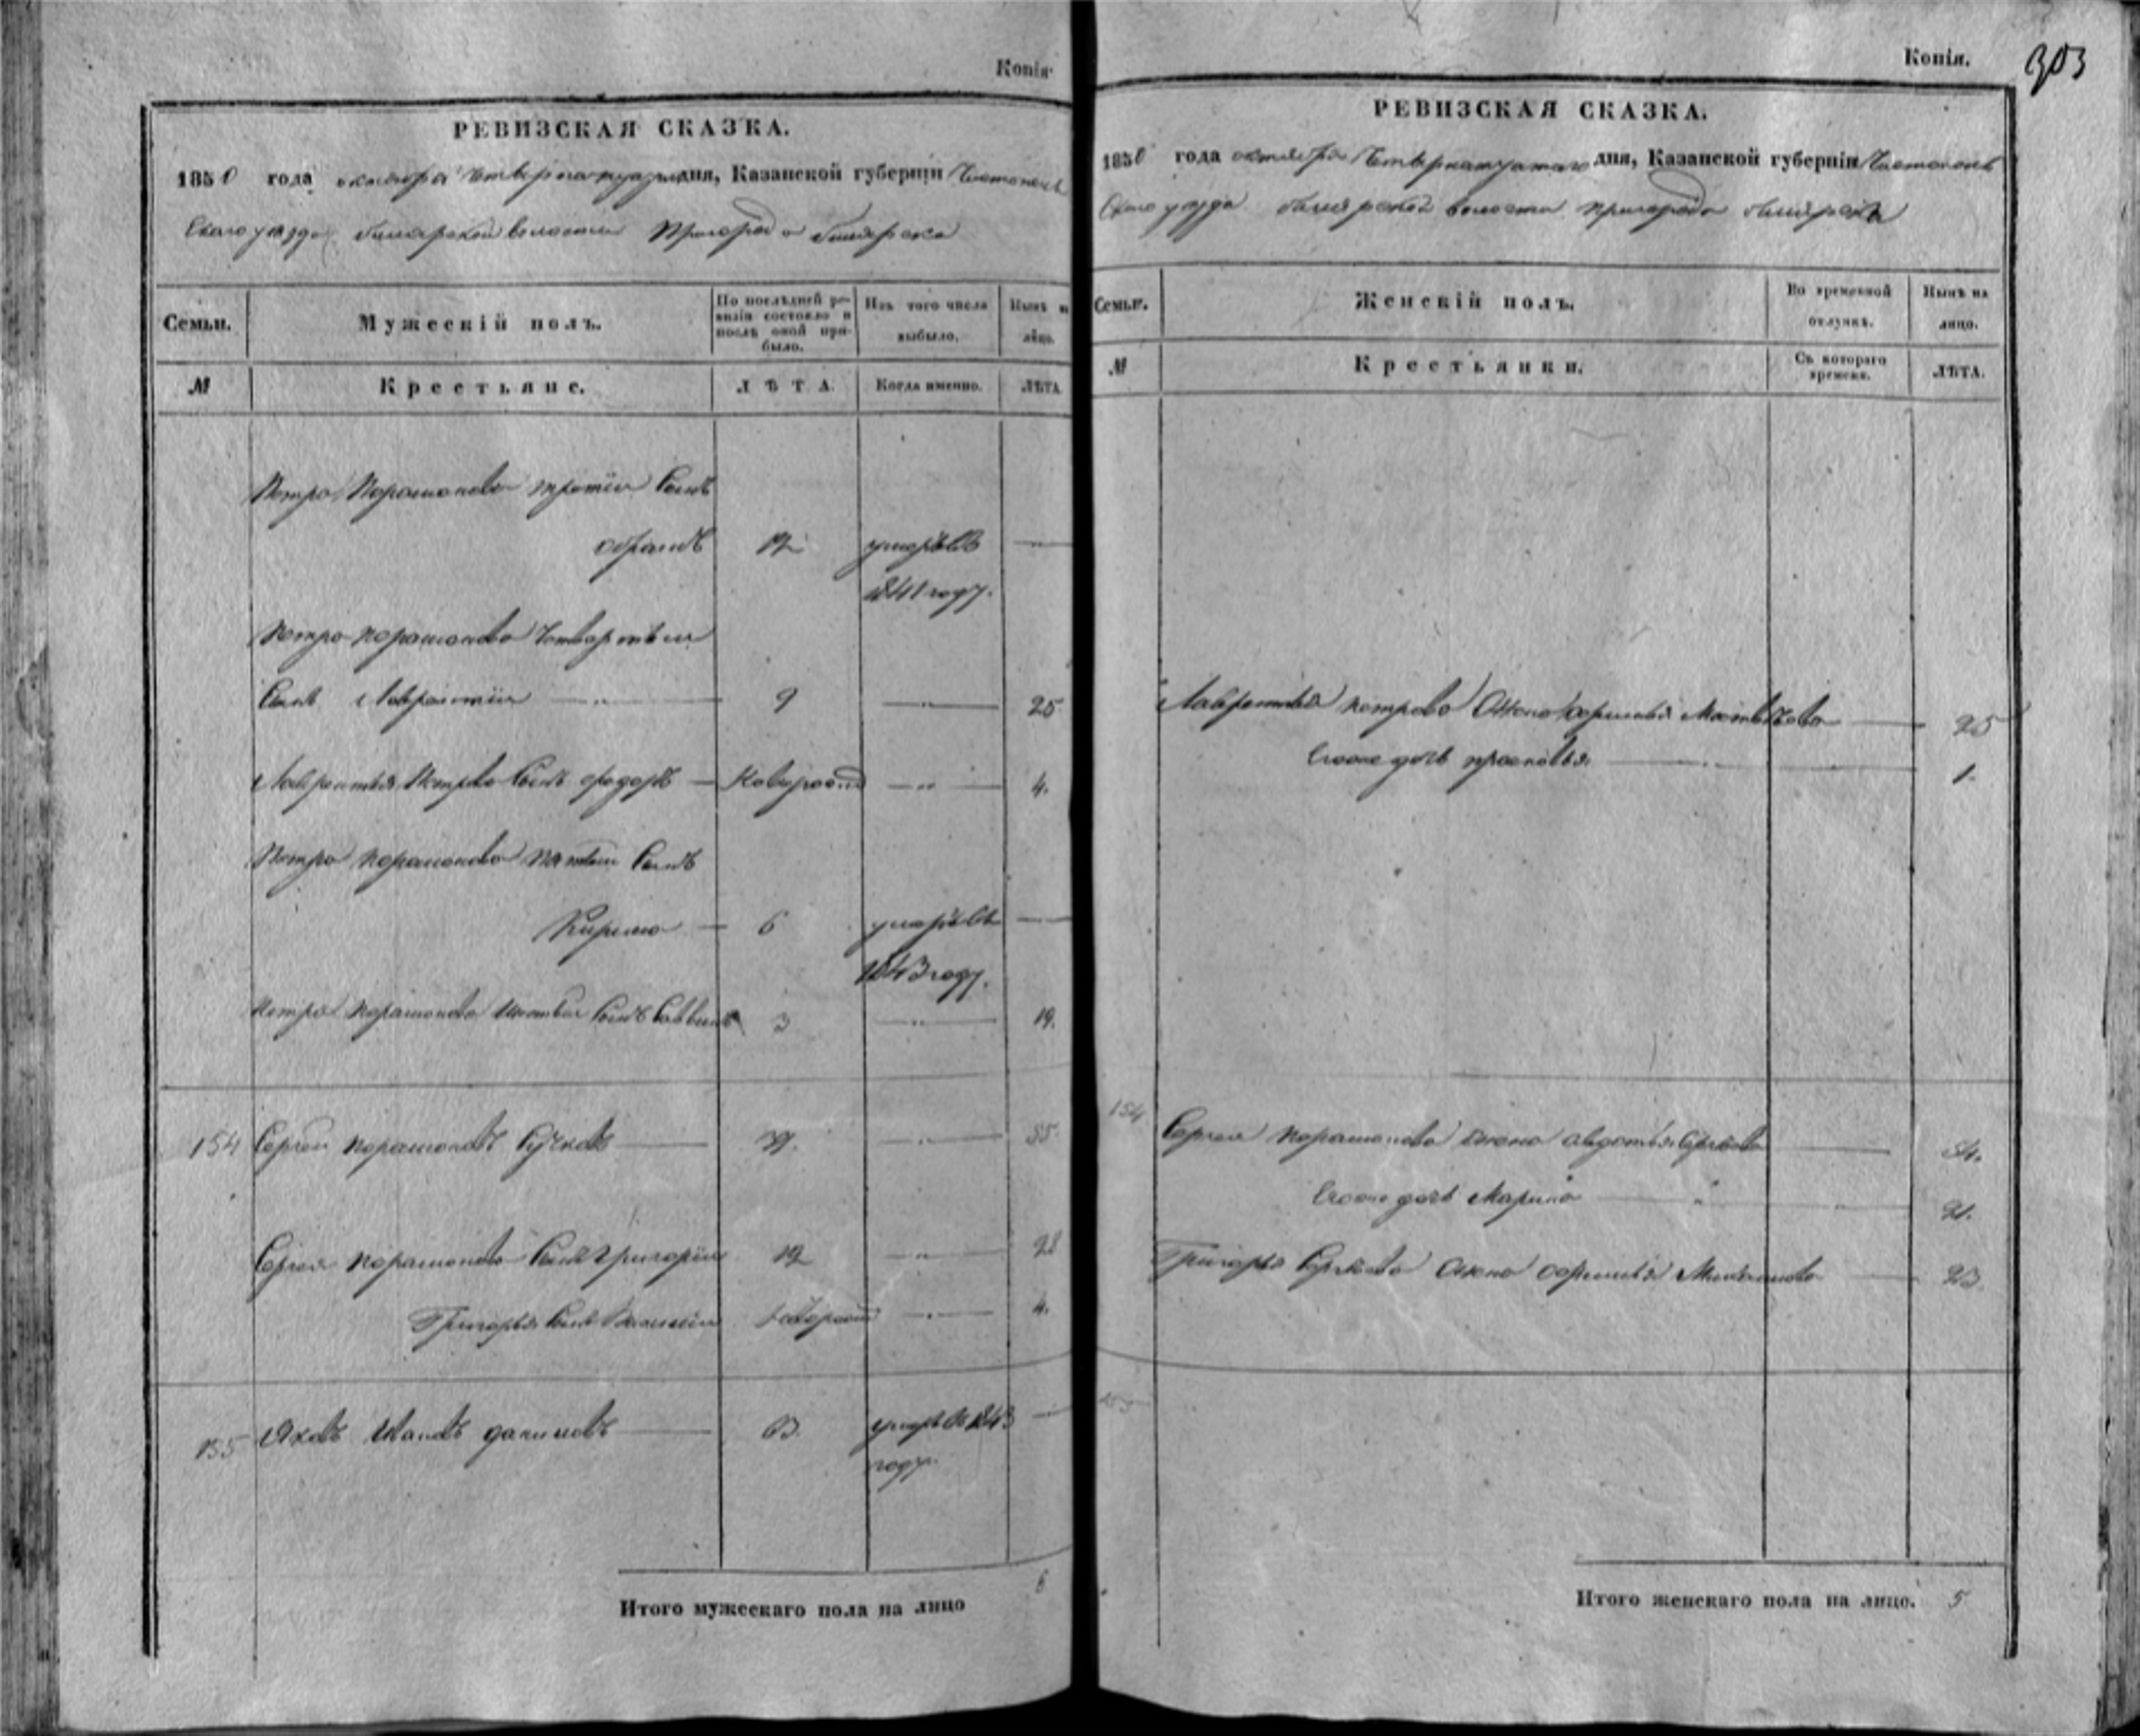 Копія
РЕВИЗСКАЯ СКАЗКА.
1850 года октября Четвернатцатаго дня, Казанской губерніи Чистополь
Скаго уезда билярской волости Пригорода билярска
Семьи.
Мужескій полъ.
По послѣдней ре-
визіи состояло и
послѣ оной при-
было.
Изъ того числа
выбыло.
Нынѣ н
лицо.
№
Крестьяне.
ЛѢТА.
Когда именно.
ЛѢТА
Петра Парамонова третій Сынъ
12 умеръ въ —
1841 году.
Петра парамонова Четвартый
Сынъ Лаврентій — 9 — 25
Лаврентья Петрова Сынъ федоръ — Новорож — 4.
Петра парамонова пятый Сынъ
Кирила — 6 умеръ въ —
1843 году.
петра парамонова шестой Сынъ 3 — 19.
154 Сергей парамоновъ — 39. — 55.
Сергея парамонова Сынъ Григорій 12 — 28
Григорья Сынъ новорож — 4.
155 Яковъ Ивановъ даниловъ — 63. умеръ въ 1843 —
году.
Итого мужескаго пола на лицо 6
Копія.
303
РЕВИЗСКАЯ СКАЗКА.
1850 года октября Четвернатцатаго дня, Казанской губерніи Чистополь
Скаго уезда билярской волости пригорода билярска
Семьи.
Женскій полъ.
Во временной
отлучкѣ.
Нынѣ на
лицо.
№
Крестьянки.
Съ котораго
времени.
ЛѢТА.
Лаврентья петрова Жена Матвеева — 25
Ихъ дочь прасковья — 1.
154 Сергея парамонова Жена авдотья — 54.
дочь Марина — 21.
Григорья Сергеева Жена — 23.
Итого женскаго пола на лицо. 5